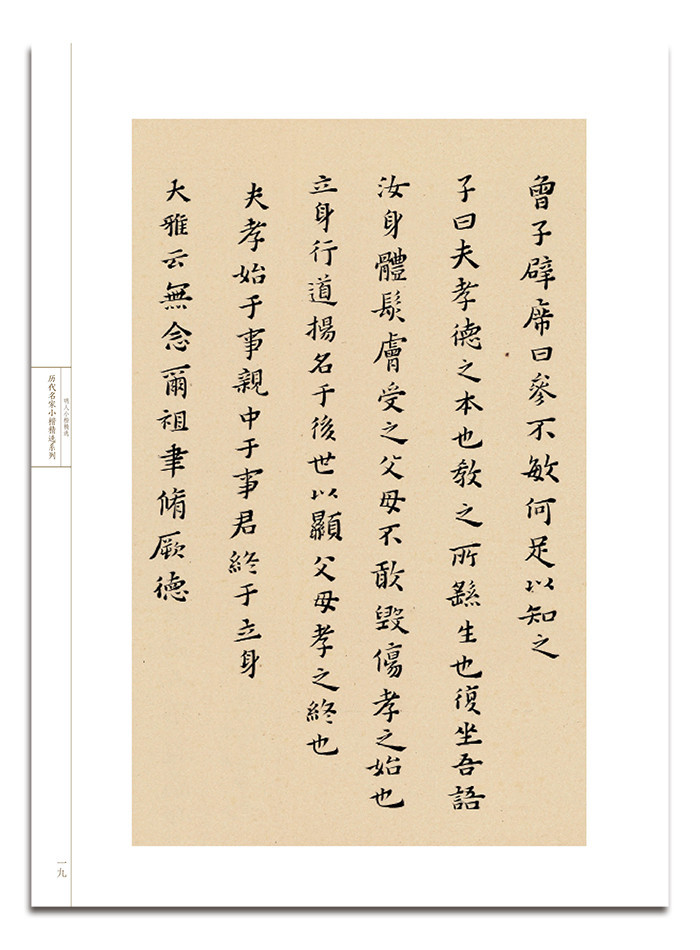 曾子辟席曰參不敏何足以知之
子曰夫孝德之本也教之所繇生也復坐吾語
汝身體髮膚受之父母不敢毀傷孝之始也
立身行道揚名于後世以顯父母孝之終也
夫孝始于事親中于事君終于立身
大雅云無念爾祖聿脩厥德
明人小楷精选
历代名家小楷精选系列
一九